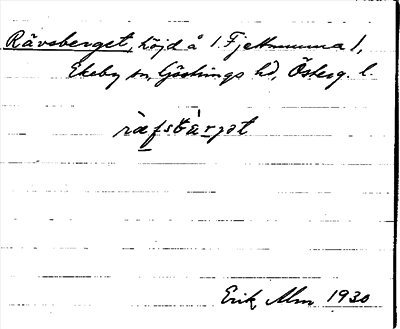 Rävsberget, höjd å 1. Fjettmunna 1,
Ekeby sn, Göstrings hd, Österg. l.
räfsbärjət
Erik Alm 1930